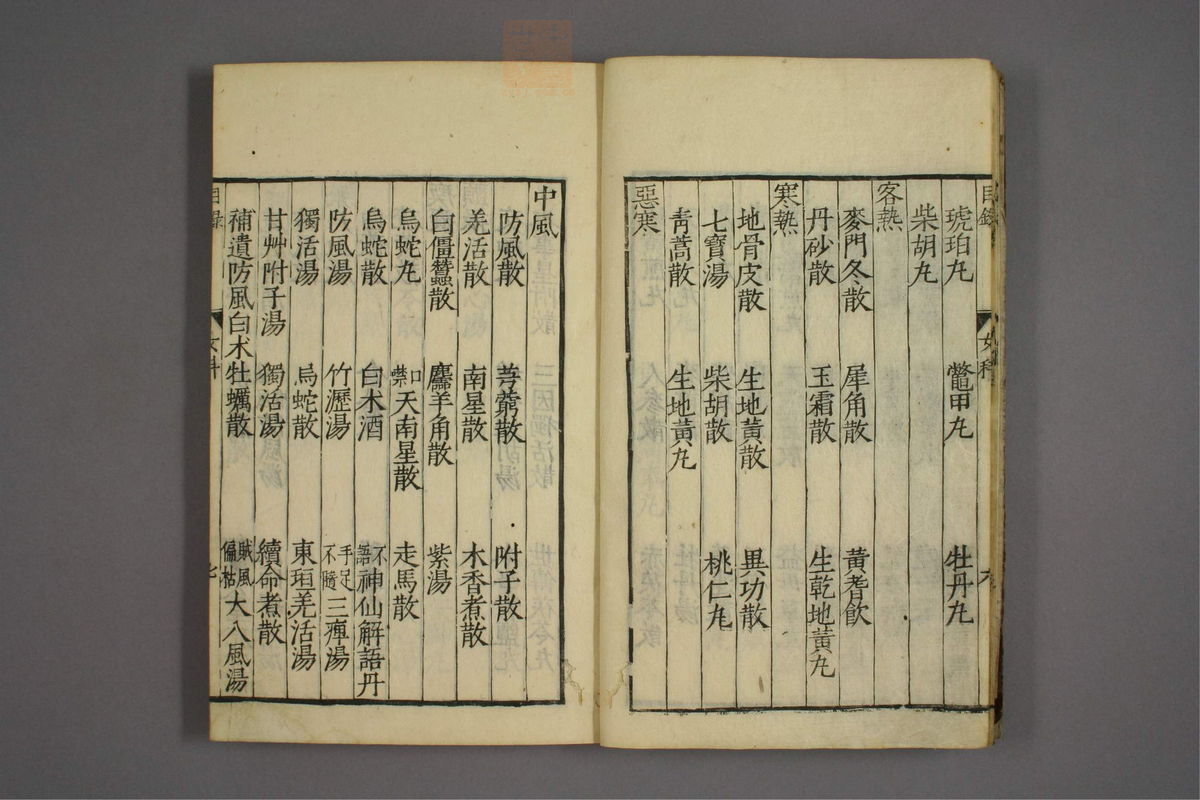 目錄 女科 六
琥珀丸 鼈甲丸 牡丹丸
柴胡丸
客熱
麥門冬散 犀角散 黃耆飲
丹砂散 玉霜散 生乾地黃丸
寒熱
地骨皮散 生地黃散 異功散
七寶湯 柴胡散 桃仁丸
靑蒿散 生地黃丸
惡寒
中風
防風散 芎藭散 附子散
羌活散 南星散 木香煮散
白僵蠶散 麢羊角散 紫湯
烏蛇丸 口噤天南星散 走馬散
烏蛇散 白朮酒 不語神仙解語丹
防風湯 竹瀝湯 手足不隨三痺湯
獨活湯 烏蛇散 東垣羌活湯
甘艸附子湯 獨活湯 續命煮散
補遺防風白朮牡蠣散 賊風偏枯大八風湯
目錄 女科 七